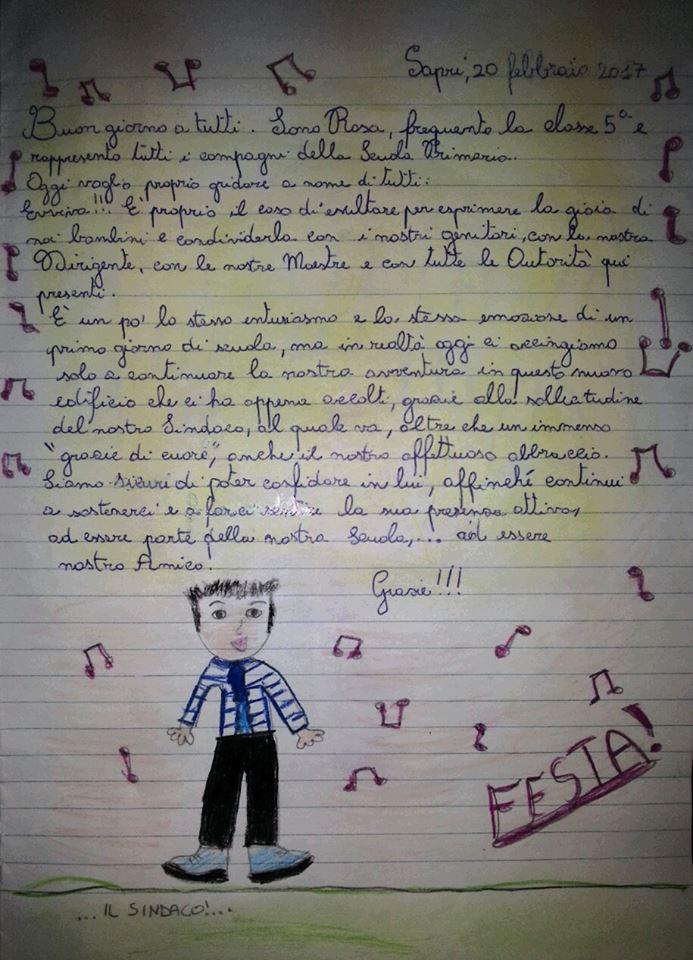 Sapri, 20 febbraio 2017
Buon giorno a tutti. Sono Rosa, frequento la classe 5ª e
rappresento tutti i compagni della Scuola Primaria..
Oggi voglio proprio gridare a nome di tutti:
Evviva!!! E' proprio il caso di esultare per esprimere la gioia di
noi bambini e condividerla con i nostri genitori, con la nostra
Dirigente, con le nostre Maestre e con tutte le Autorità qui
presenti.
È un po' lo stesso entusiasmo e la stessa emozione di un
primo giorno di scuola, ma in realtà oggi ci accingiamo
solo a continuare la nostra avventura in questo nuovo
edificio che ci ha appena accolti, grazie alla sollecitudine
del nostro Sindaco, al quale va, oltre che un immenso
"grazie di cuore", anche il nostro affettuoso abbraccio.
Siamo sicuri di poter confidare in lui, affinché continui
a sostenerci e a farci sentire la sua presenza attiva,
ad essere parte della nostra Scuola,... ad essere
nostro Amico.
Grazie!!!
FESTA!
...IL SINDACO!...